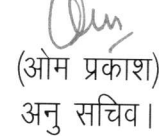 (ओम प्रकाश)
अनु सचिव।